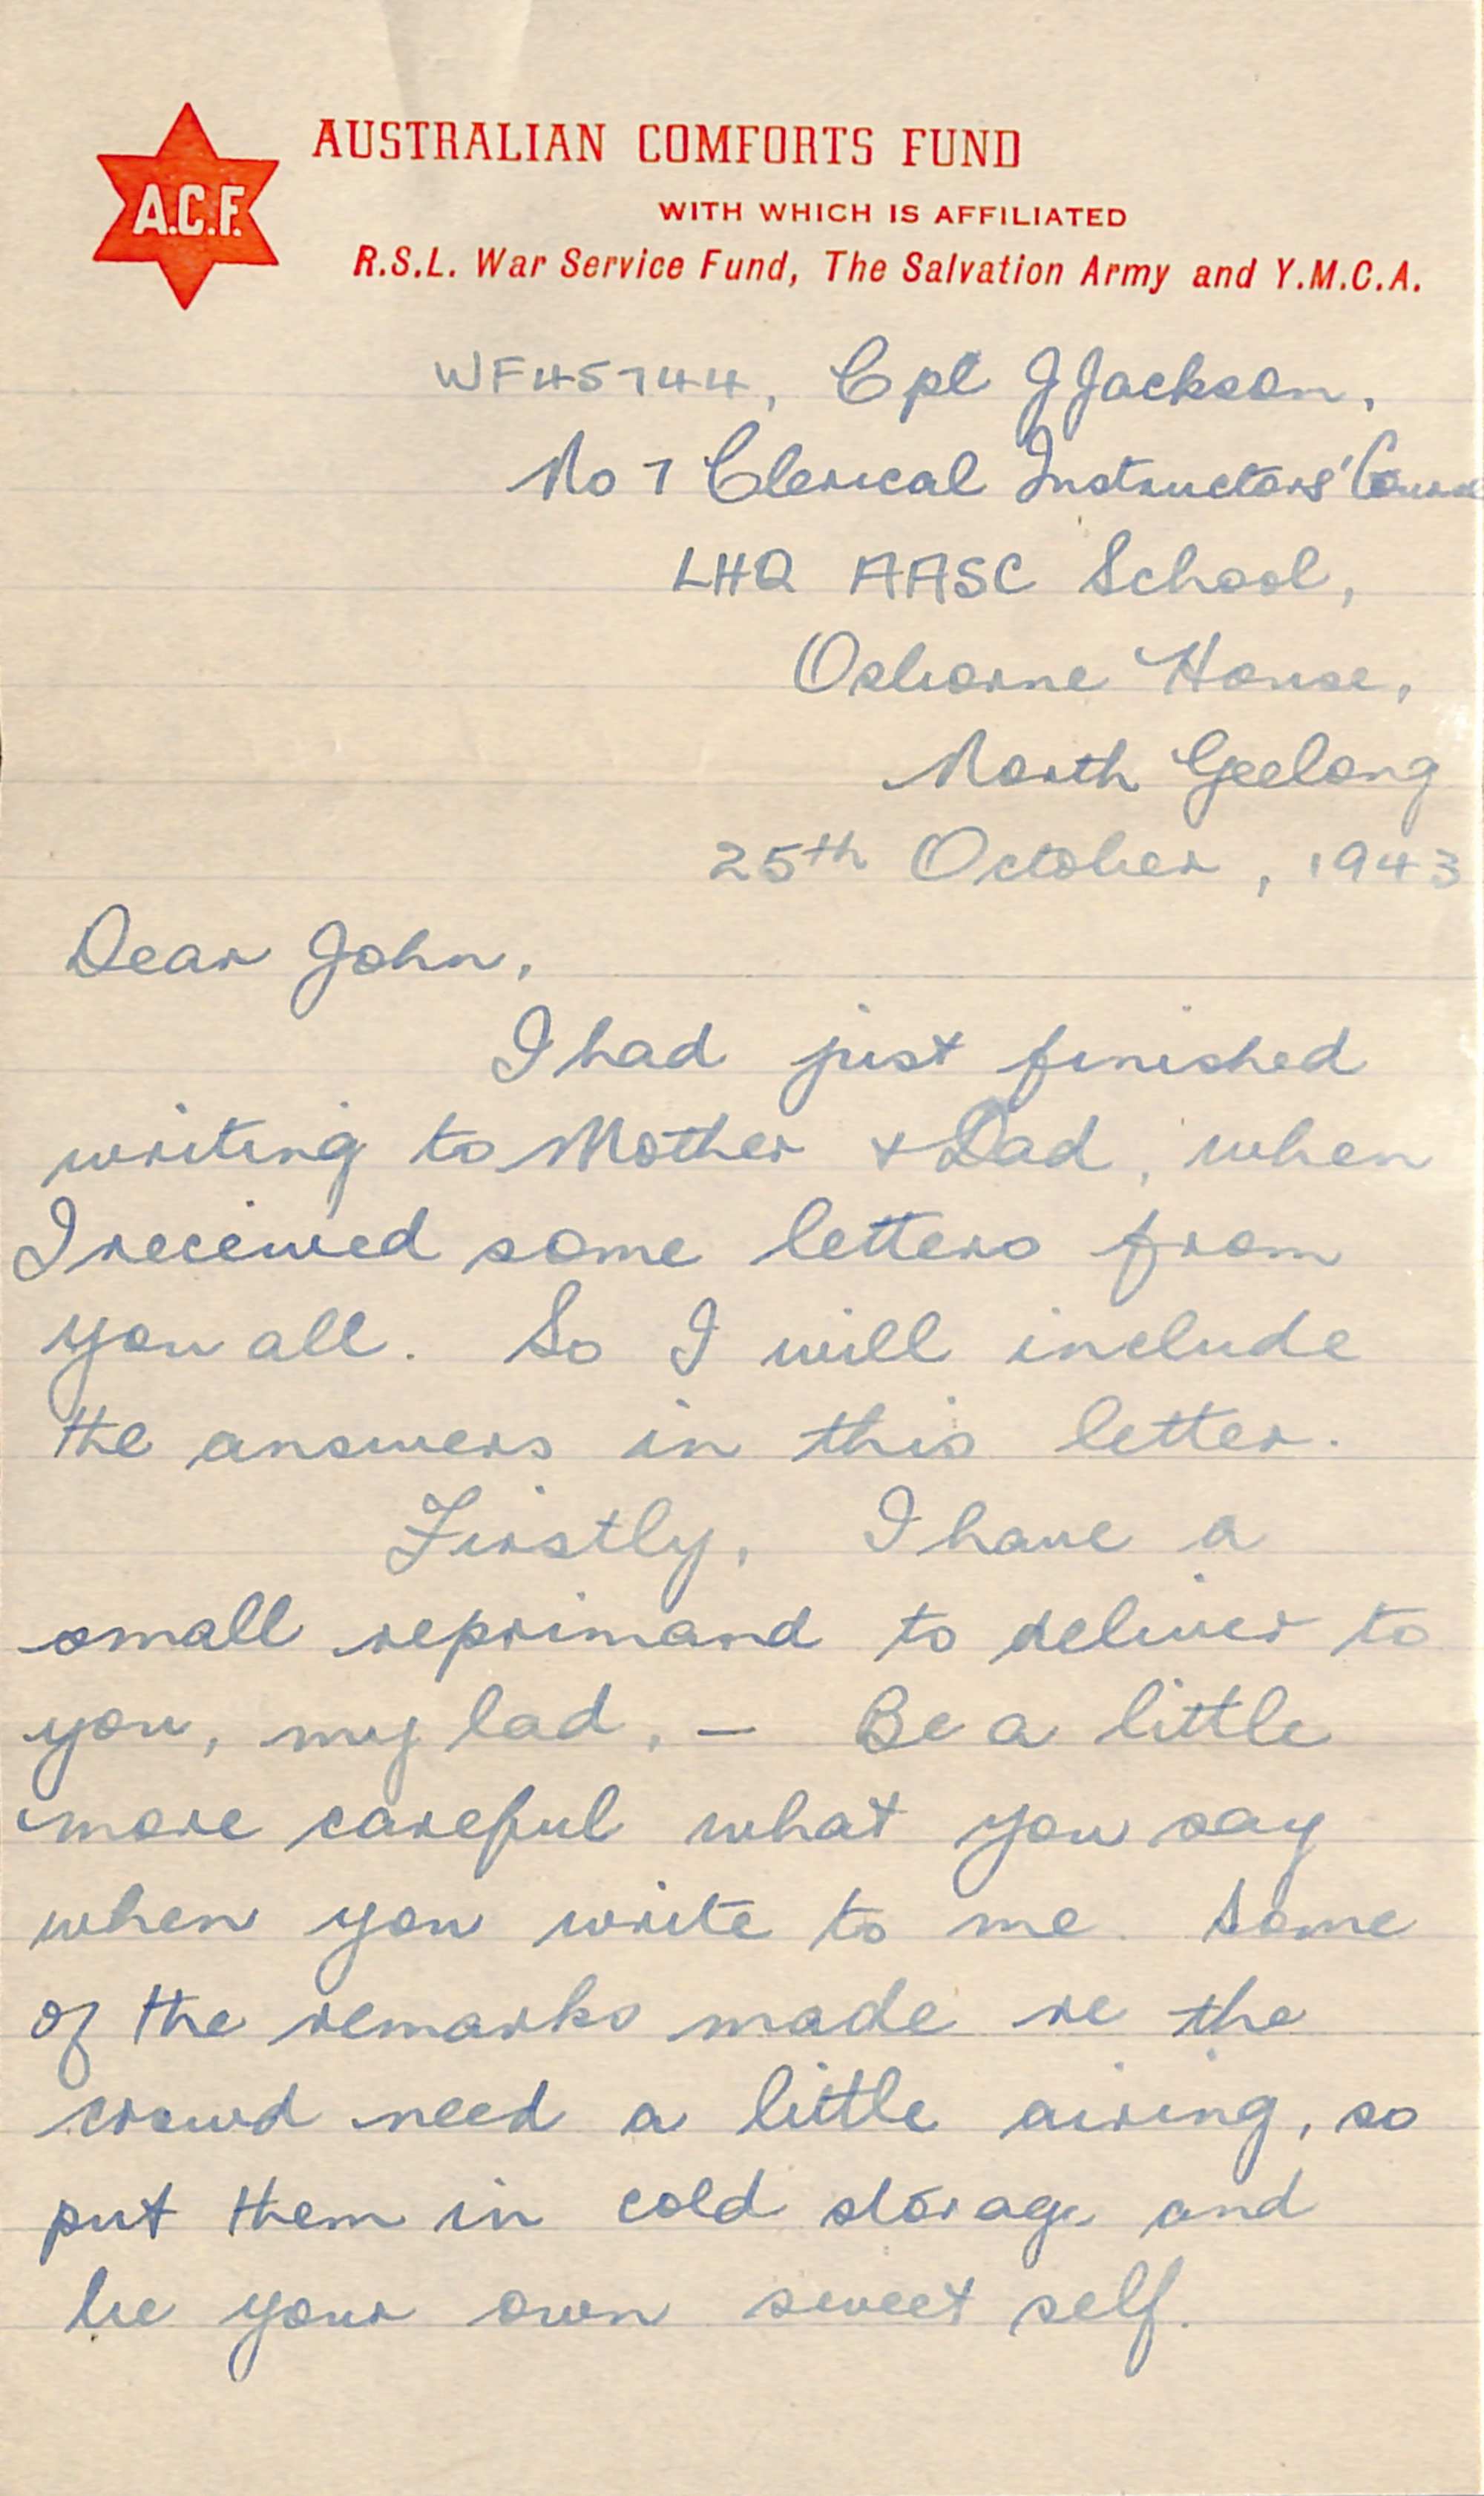 A.C.F.
AUSTRALIAN COMFORTS FUND
WITH WHICH IS AFFILIATED
R.S.L. War Service Fund, The Salvation Army and Y.M.C.A.
WF45744, Cpl J Jackson,
No 7 Clerical Instructors' Course
LHQ AASC School,
Osborne House,
North Geelong
25th October, 1943
Dear John,
I had just finished
writing to Mother & Dad, when
I received some letters from
you all. So I will include
the answers in this letter.
Firstly, I have a
small reprimand to deliver to
you, my lad, - Be a little
more careful what you say
when you write to me. Some
of the remarks made re the
crowd need a little airing, so
put them in cold storage and
be your own sweet self.